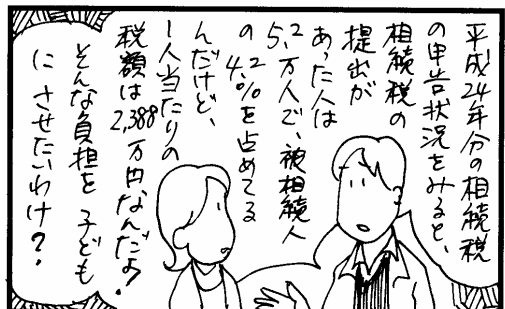 平成24年分の相続税
の申告状況をみると、
相続税の
提出が
あった人は
5.2万人で、被相続人
の4.2%を占めてる
んだけど、
1人当たりの
税額は2,388万円なんだよ!
そんな負担を子ども
にさせたいわけ?